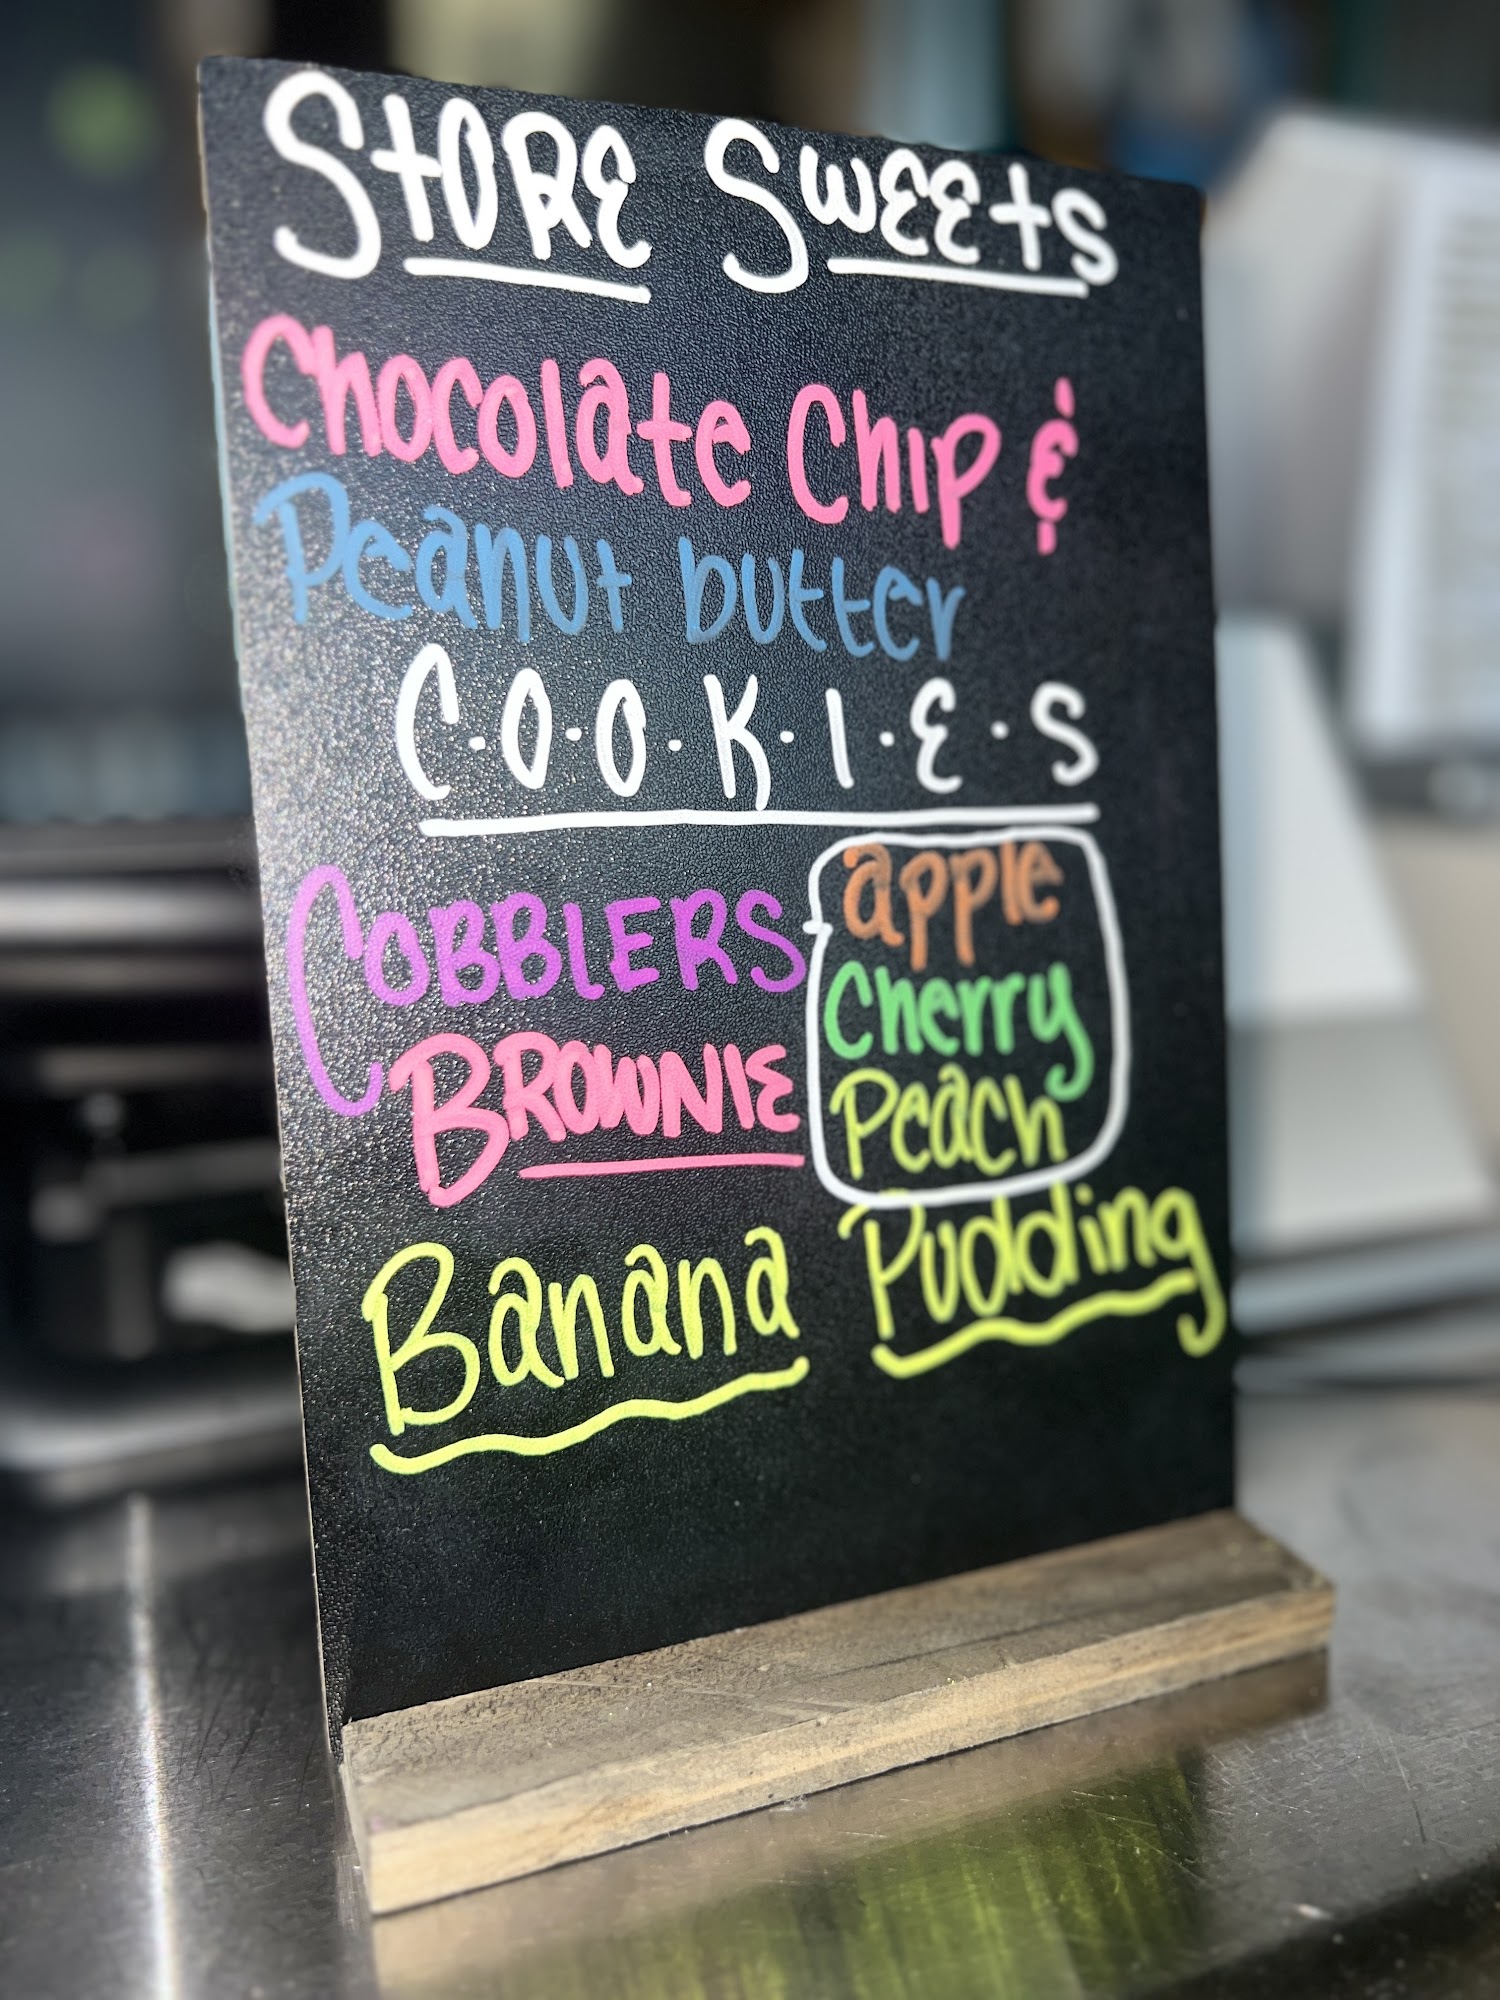 StORE SwEEtS
Chocolate Chip &
Peanut butter
C·O·O·K·I·E·S
COBBlERS
apple
Cherry
Peach
BROWNIE
Banana Pudding